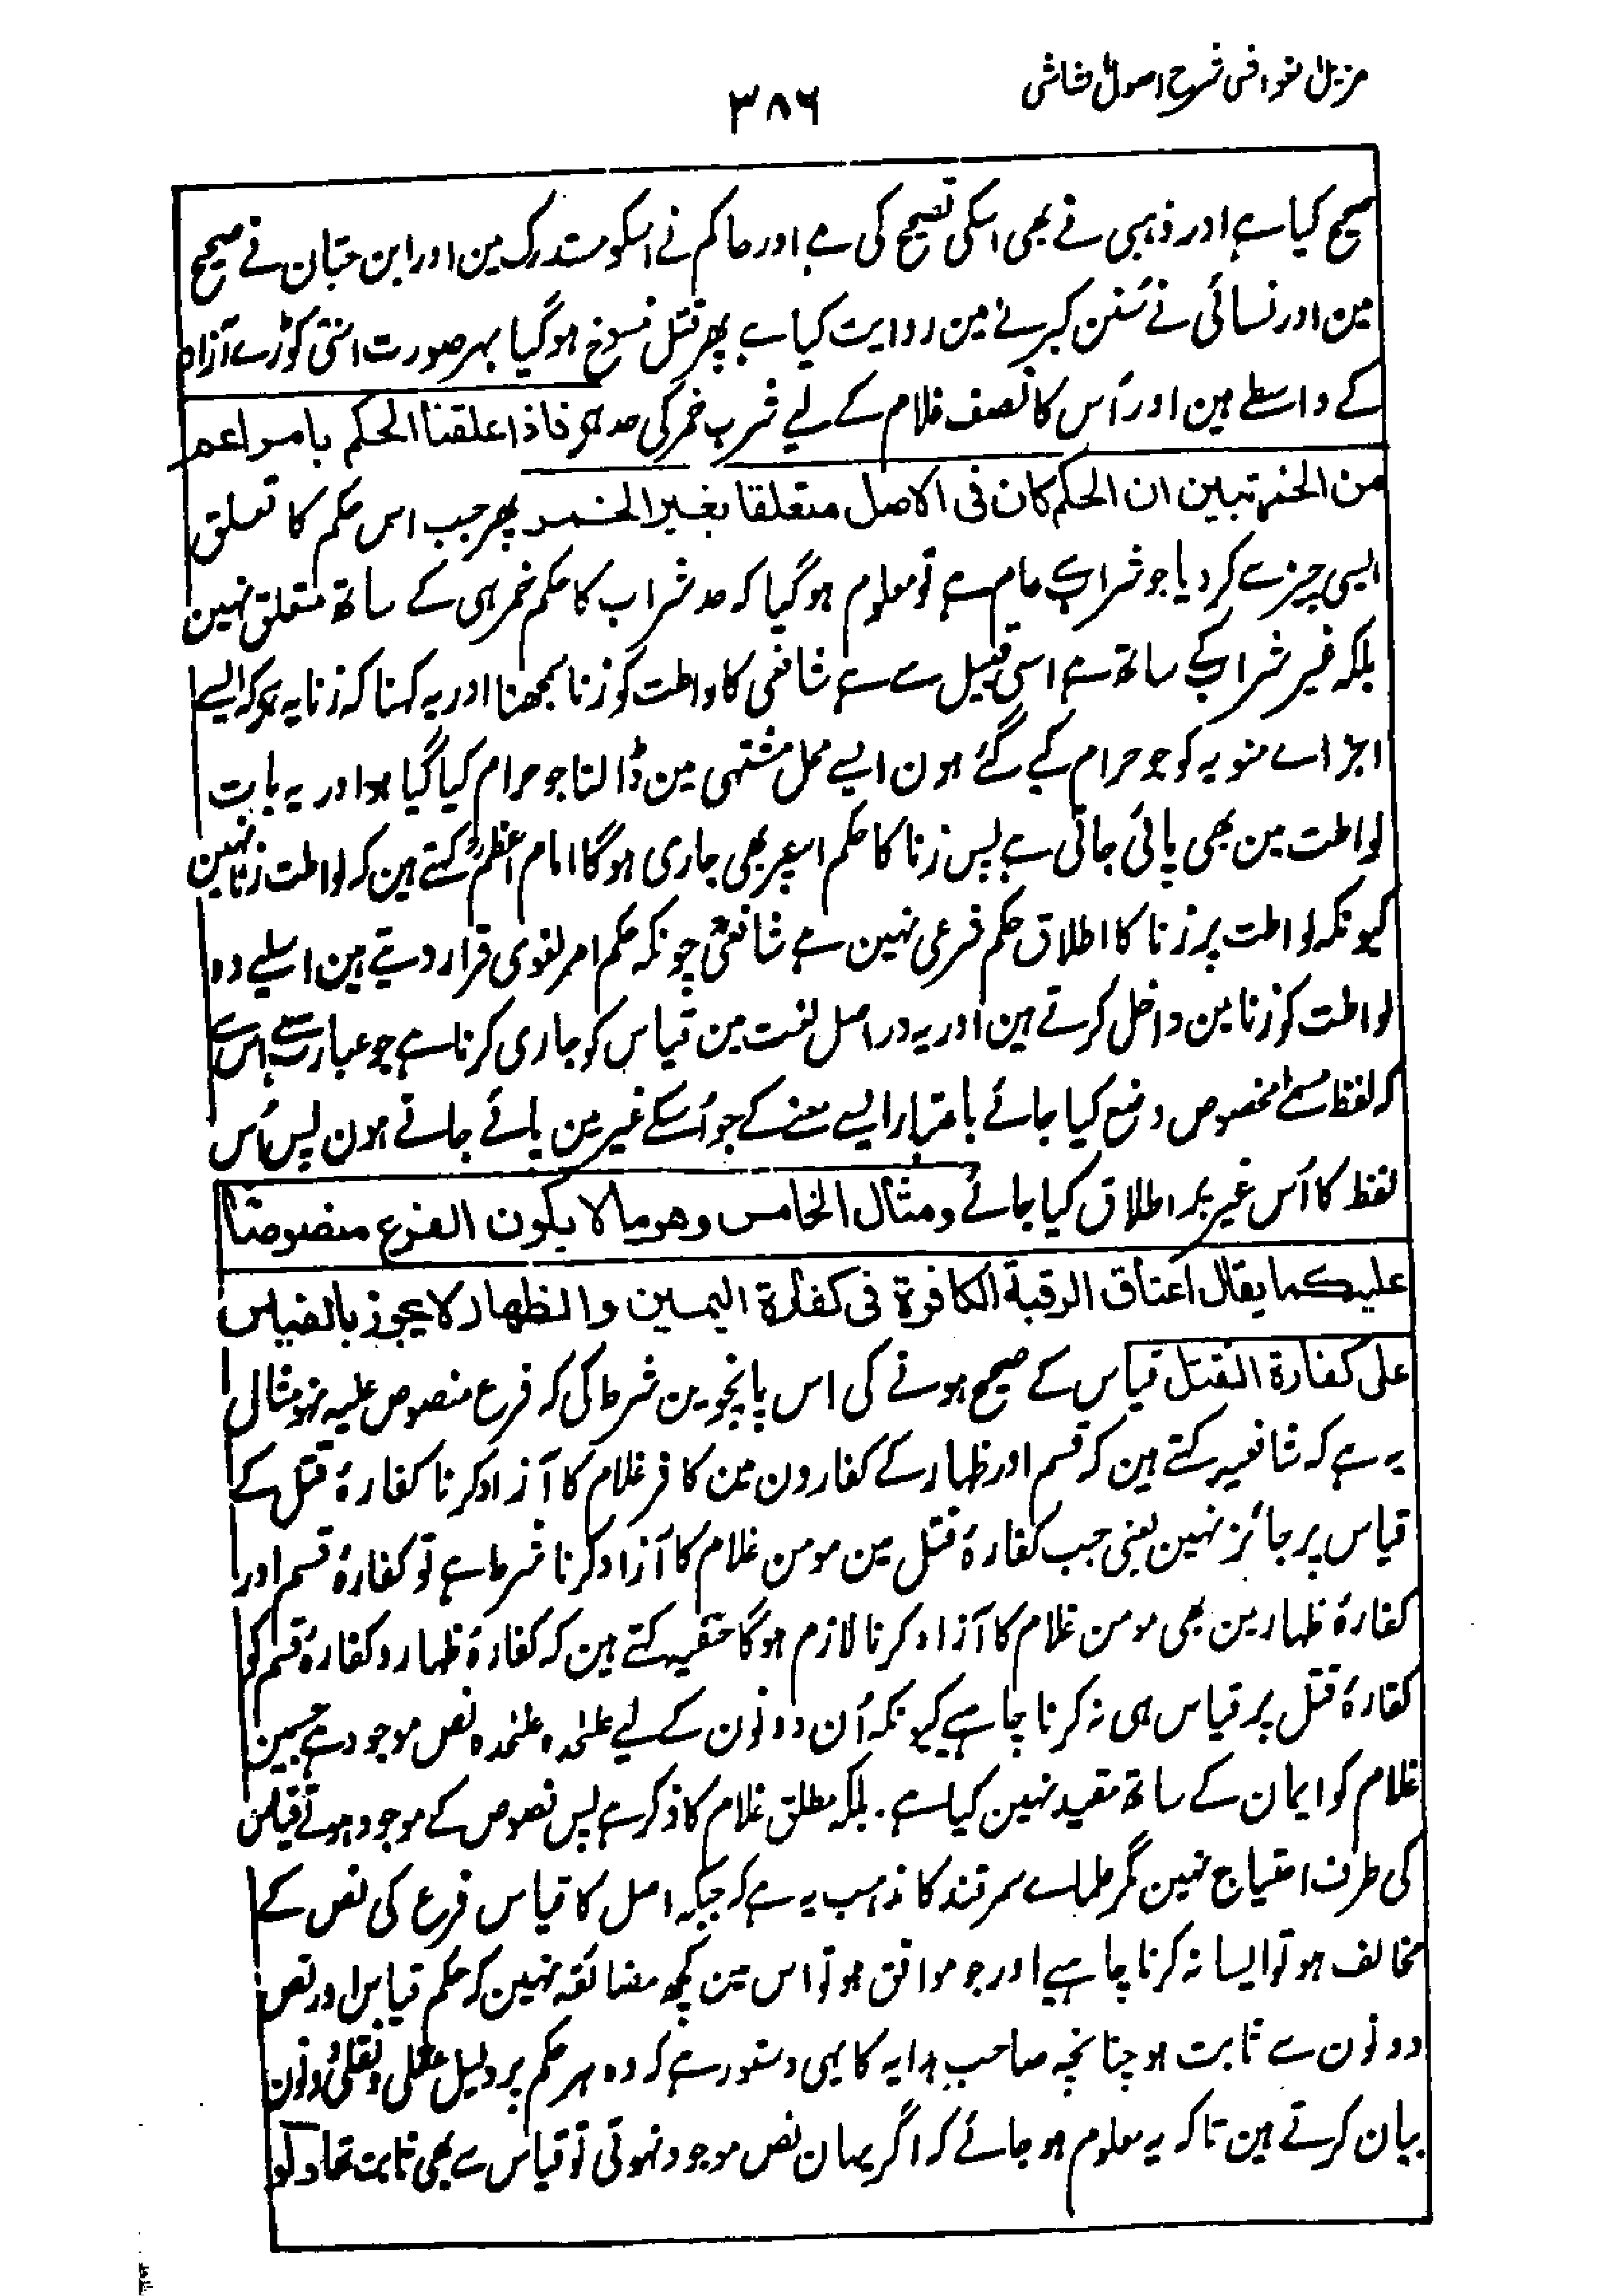 مزیل الغواشی شرح اصول الشاشی
۳۸۶
صحیح کیا ہے اور ذہبی نے بھی اسکی تصحیح کی ہے اور حاکم نے اسکو مستدرک مین اور ابن حبّان نے صحیح
مین اور نسائی نے سُنن کبرے مین روایت کیا ہے پھر قتل منسوخ ہوگیا بہر صورت اسّی کوڑے آزاد
کے واسطے ہین اور اُس کا نصف غلام کے لیے شرب خمر کی حد ہے فاذا علقنا الحکم بامر اعم
من الخمر تبین ان الحکم کان فی الاصل متعلقا بغیر الخمر پھر جب اس حکم کا تعلق
ایسی چیز سے کر دیا جو شراب سے عام ہے تو معلوم ہوگیا کہ حد شراب کا حکم خمر ہی کے ساتھ متعلق نہین
بلکہ غیر شراب کے ساتھ ہے اسی قبیل سے ہے شافعی کا لواطت کو زنا سمجھنا اور یہ کہنا کہ زنا یہ ہے کہ ایسے
اجزاے منویہ کو جو حرام کیے گئے ہون ایسے محل مشتہی مین ڈالنا جو حرام کیا گیا ہو اور یہ بات
لواطت مین بھی پائی جاتی ہے پس زنا کا حکم اسپر بھی جاری ہوگا امام اعظمؒ کہتے ہین کہ لواطت زنا نہین
کیونکہ لواطت پر زنا کا اطلاق حکم شرعی نہین ہے شافعیؒ چونکہ حکم امر لغوی قرار دیتے ہین اسلیے وہ
لواطت کو زنا مین داخل کرتے ہین اور یہ در اصل لغت مین قیاس کو جاری کرنا ہے جو عبارت ہے اس سے
کہ لفظ مسمّے مخصوص وضع کیا جائے باعتبار ایسے معنے کے جو اُسکے غیر مین پائے جاتے ہون پس اُس
لفظ کا اُس غیر پر اطلاق کیا جائے ومثال الخامس وهو ما لا یکون الفرع منصوصا
علیه کما یقال اعتاق الرقبة الکافرة فی کفارة الیمین والظهار لا یجوز بالقیاس
علی کفارة القتل قیاس کے صحیح ہونے کی اس پانچوین شرط کی کہ فرع منصوص علیہ نہو مثال
یہ ہے کہ شافعیہ کہتے ہین کہ قسم اور ظہار کے کفارون مین کافر غلام کا آزاد کرنا کفارۂ قتل کے
قیاس پر جائز نہین یعنی جب کفارۂ قتل مین مومن غلام کا آزاد کرنا شرط ہے تو کفارۂ قسم اور
کفارۂ ظہار مین بھی مومن غلام کا آزاد کرنا لازم ہوگا حنفیہ کہتے ہین کہ کفارۂ ظہار و کفارۂ قسم کو
کفارۂ قتل پر قیاس ہی نہ کرنا چاہیے کیونکہ اُن دونون کے لیے علٰحدہ علٰحدہ نص موجود ہے جسمین
غلام کو ایمان کے ساتھ مقید نہین کیا ہے۔ بلکہ مطلق غلام کا ذکر ہے پس نصوص کے موجود ہوتے قیاس
کی طرف احتیاج نہین مگر علماے سمرقند کا مذہب یہ ہے کہ جبکہ اصل کا قیاس فرع کی نص کے
مخالف ہو تو ایسا نہ کرنا چاہیے اور جو موافق ہو تو اس مین کچھ مضائقہ نہین کہ حکم قیاس اور نص
دونون سے ثابت ہو چنانچہ صاحب ہدایہ کا یہی دستور ہے کہ وہ ہر حکم پر دلیل عقلی و نقلی دونون
بیان کرتے ہین تاکہ یہ معلوم ہو جائے کہ اگر یہان نص موجود نہوتی تو قیاس سے بھی ثابت تھا